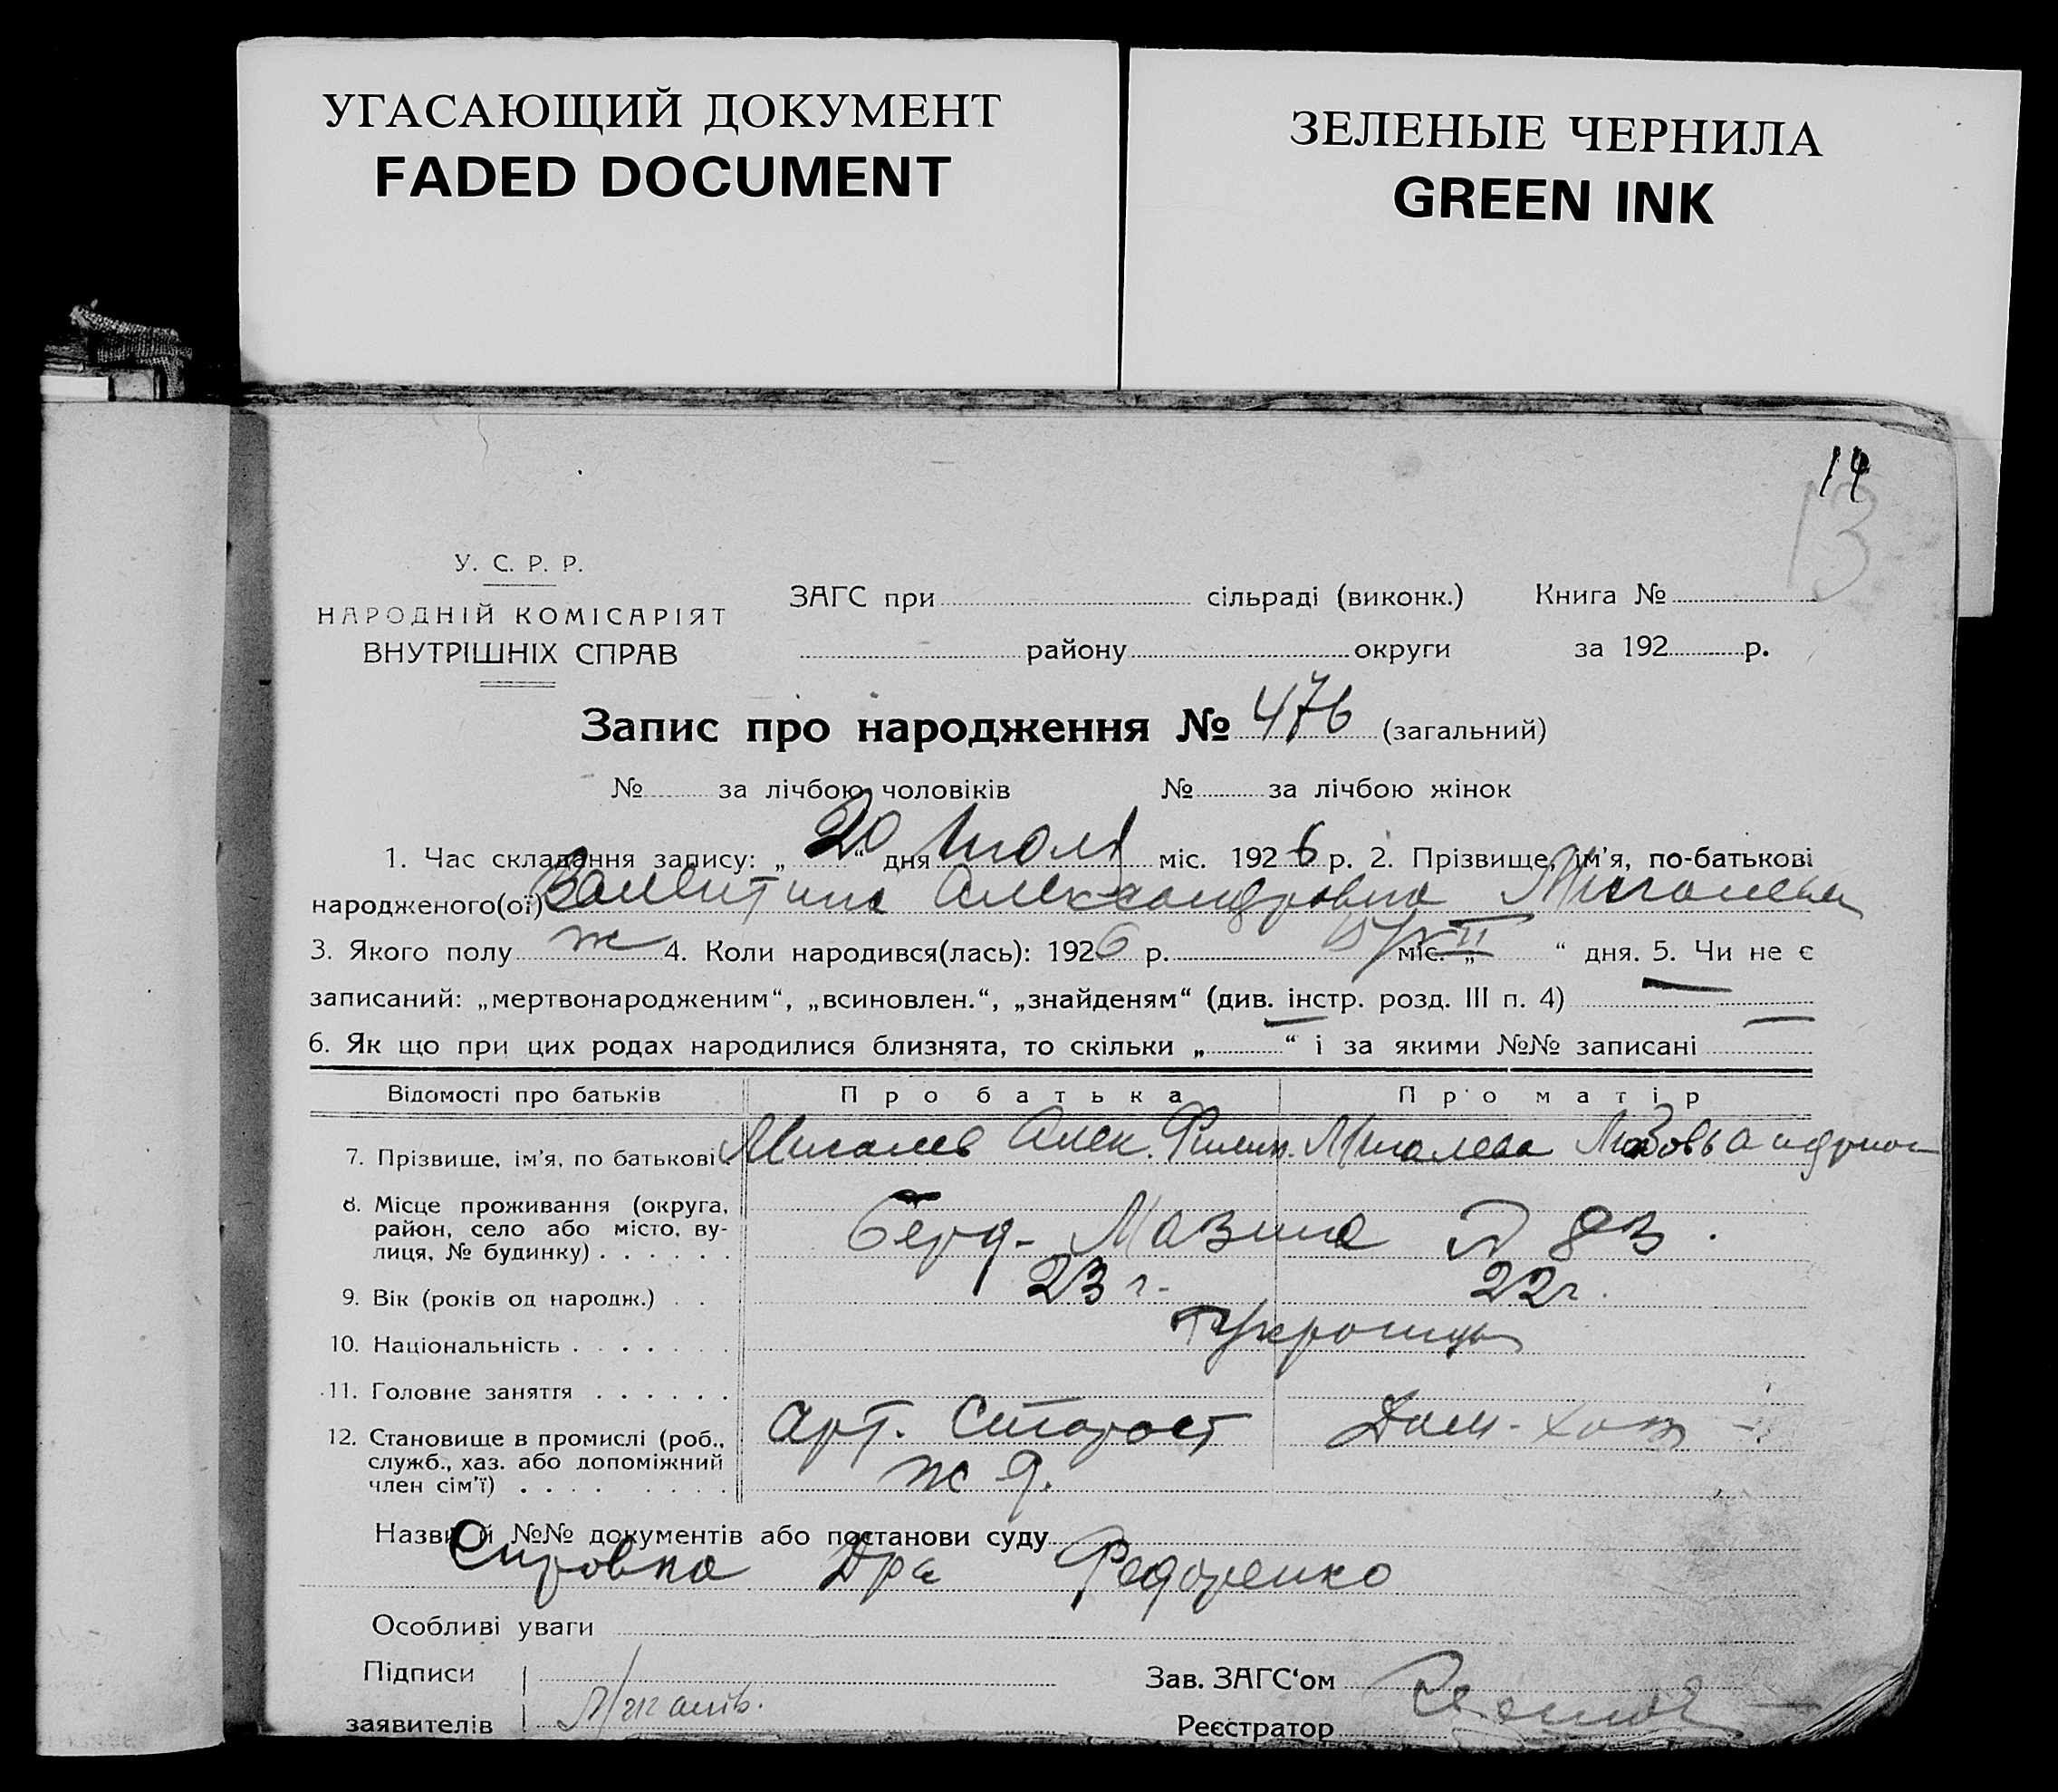 УГАСАЮЩИЙ ДОКУМЕНТ
FADED DOCUMENT
ЗЕЛЕНЫЕ ЧЕРНИЛА
GREEN INK
14
13
У. С. Р. Р.
НАРОДНІЙ КОМІСАРІЯТ
ВНУТРІШНІХ СПРАВ
ЗАГС при сільраді (виконк.) Книга №
району округи за 192 р.
Запис про народження № 476 (загальний)
№ за лічбою чоловіків № за лічбою жінок
1. Час складання запису: „20“ дня Июля міс. 1926 р. 2. Прізвище, ім’я, по-батькові
народженого(ої) Валентина Александровна Мигалева
3. Якого полу ж 4. Коли народився(лась): 1926 р. 15/VII міс. „ “ дня. 5. Чи не є
записаний: „мертвонародженим“, „всиновлен.“, „знайденям“ (див. інстр. розд. III п. 4) —
6. Як що при цих родах народилися близнята, то скільки „—“ і за якими №№ записані —
Відомості про батьків Про батька Про матір
7. Прізвище, ім’я, по батькові Мигалев Алек. Филип. Мигалева Любовь
8. Місце проживання (округа,
район, село або місто, ву-
лиця, № будинку) . . . . . . Берд- Мазина 83.
9. Вік (років од народж.) . . 23 г. 22 г.
10. Національність . . . . . . . Украинцы
11. Головне заняття . . . . . .
12. Становище в промислі (роб.,
служб., хаз. або допоміжний
член сім’ї) . . . . . . . . Арт. Старост Дом-хоз
ж д.
Назви й №№ документів або постанови суду
Справка Дра Федоренко
Особливі уваги
Підписи Зав. ЗАГС‘ом
заявителів Реєстратор